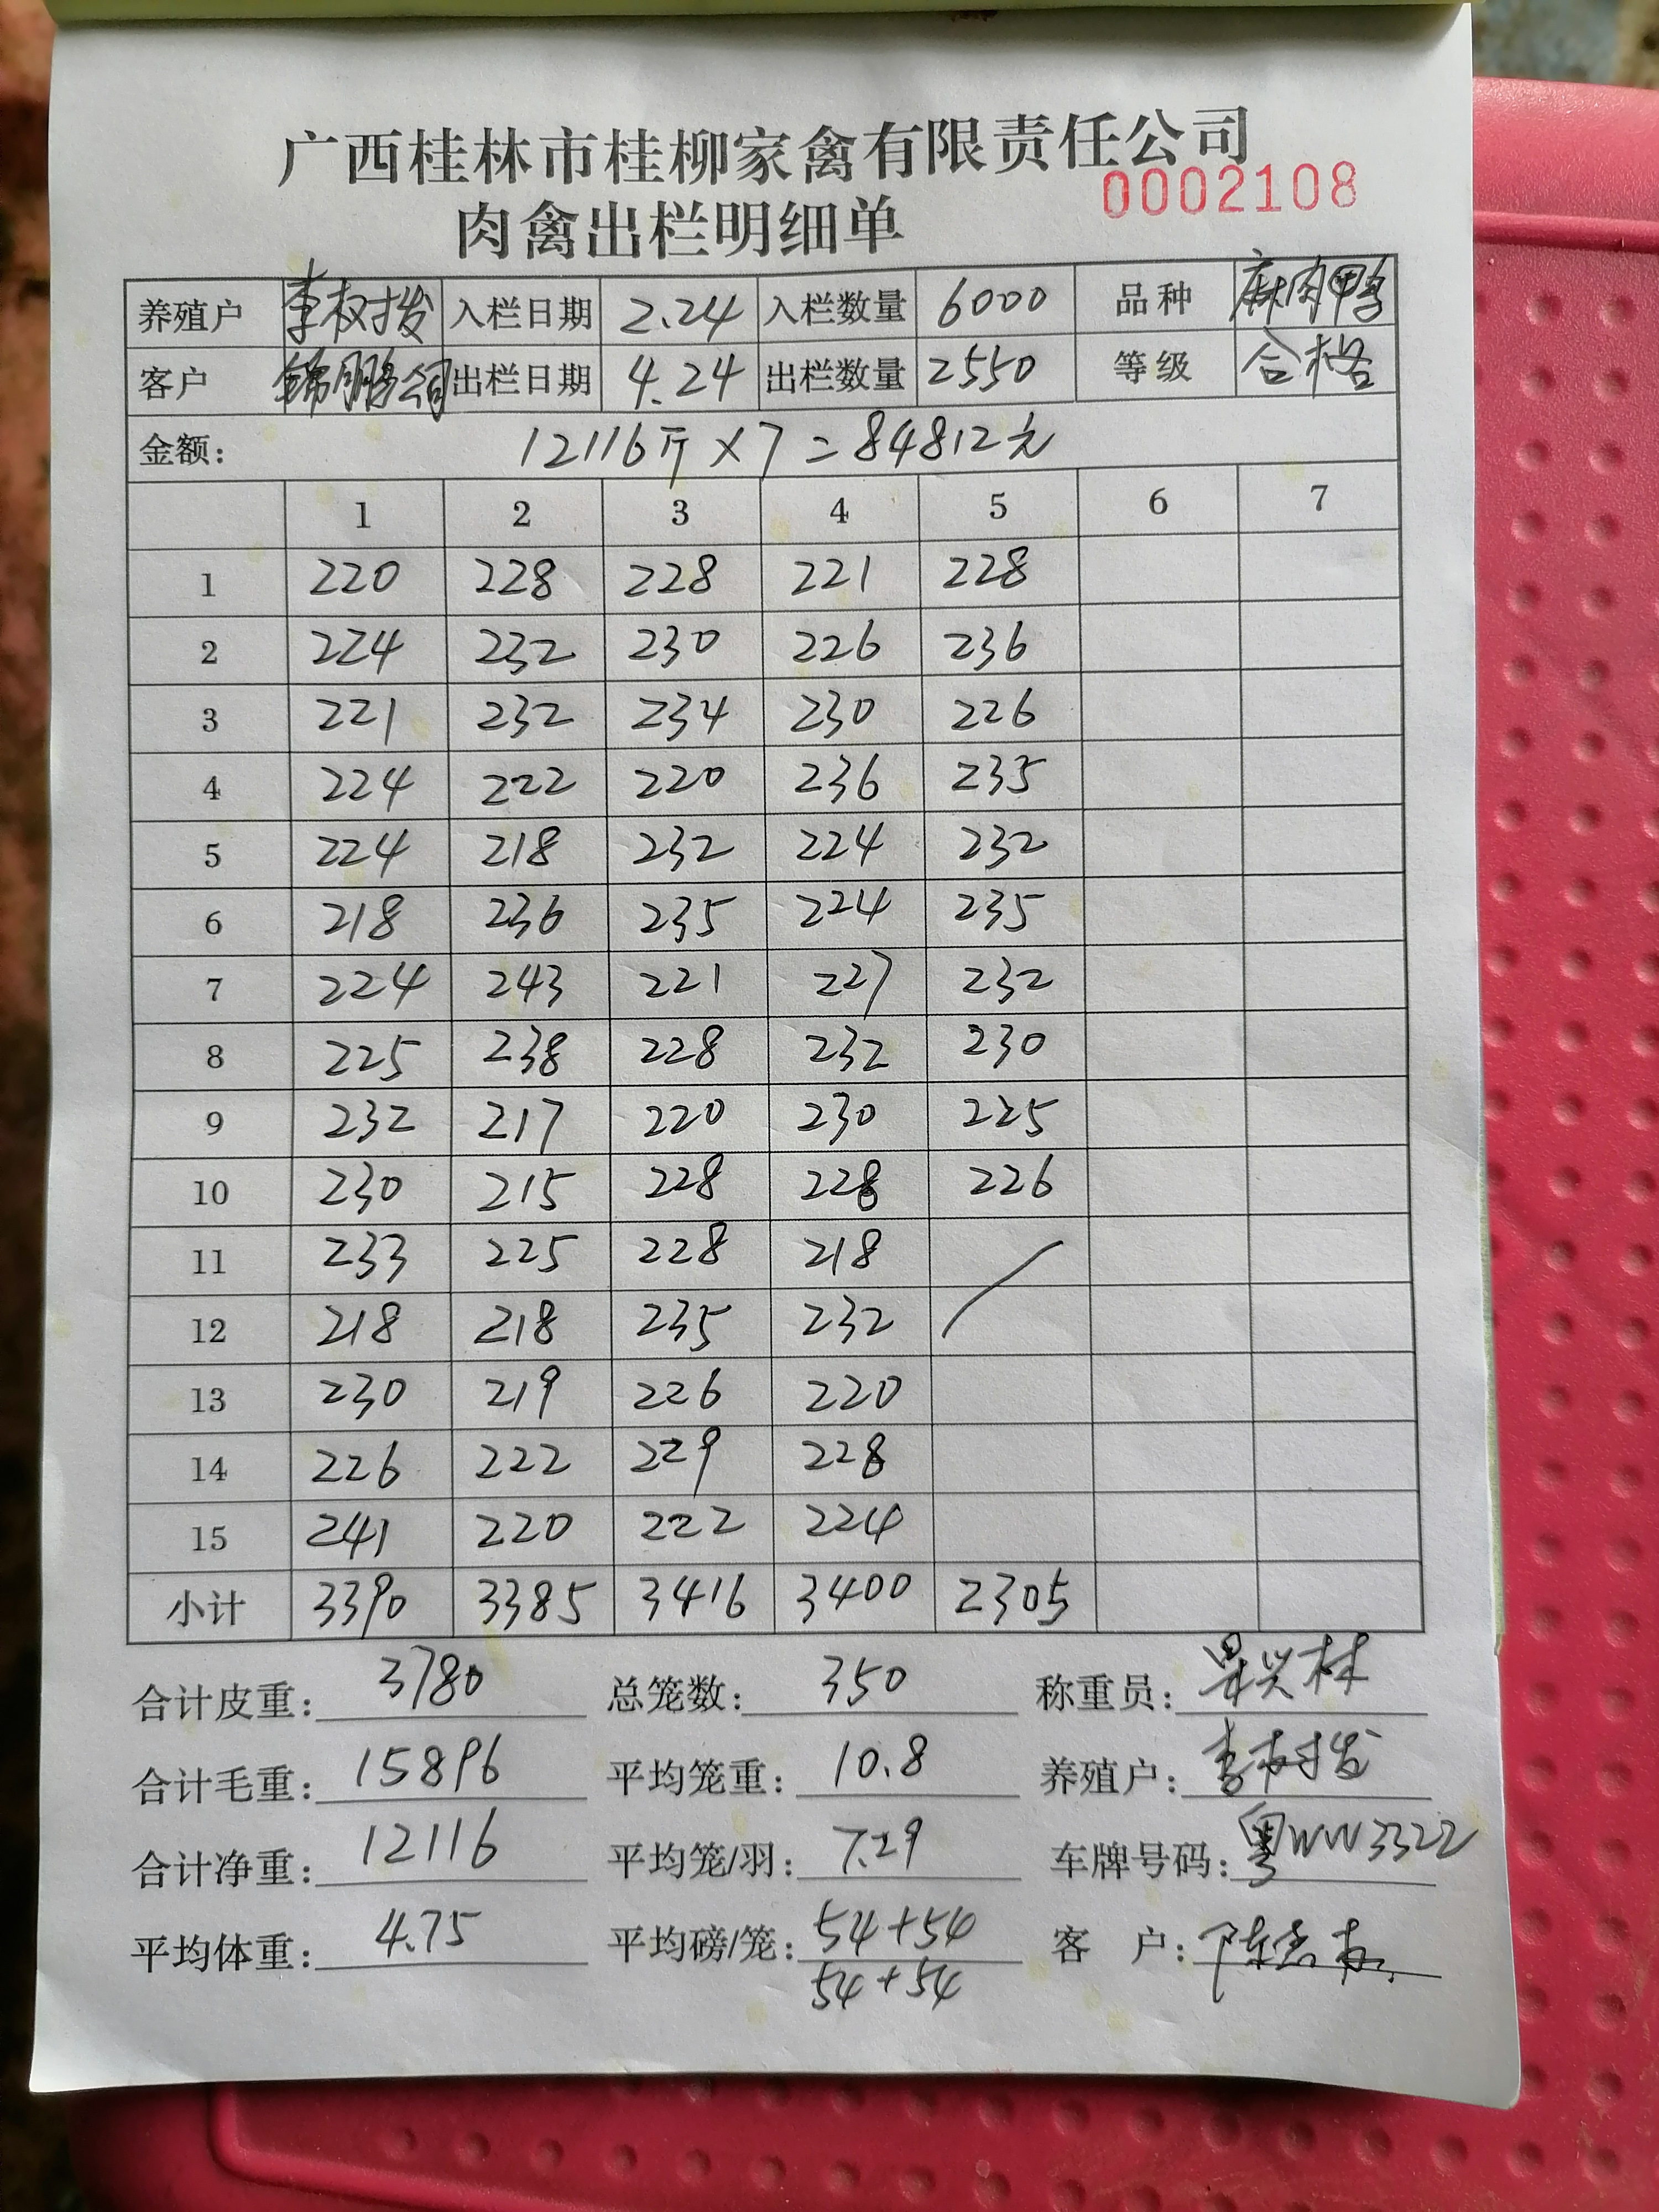 广西桂林市桂柳家禽有限责任公司
0002108
肉禽出栏明细单
养殖户 李权拨 入栏日期 2.24 入栏数量 6000 品种 麻肉鸭
客户 锦鹏公司 出栏日期 4.24 出栏数量 2550 等级 合格
金额: 12116斤×7=84812元
1 2 3 4 5 6 7
1 220 228 228 221 228
2 224 232 230 226 236
3 221 232 234 230 226
4 224 222 220 236 235
5 224 218 232 224 232
6 218 236 235 224 235
7 224 243 221 227 232
8 225 238 228 232 230
9 232 217 220 230 225
10 230 215 228 228 226
11 233 225 228 218
12 218 218 235 232
13 230 219 226 220
14 226 222 229 228
15 241 220 222 224
小计 3390 3385 3416 3400 2305
合计皮重: 3780 总笼数: 350 称重员:
合计毛重: 15896 平均笼重: 10.8 养殖户: 李权拨
合计净重: 12116 平均笼/羽: 7.29 车牌号码: 粤WW3322
平均体重: 4.75 平均磅/笼: 54+54 客 户:
54+54